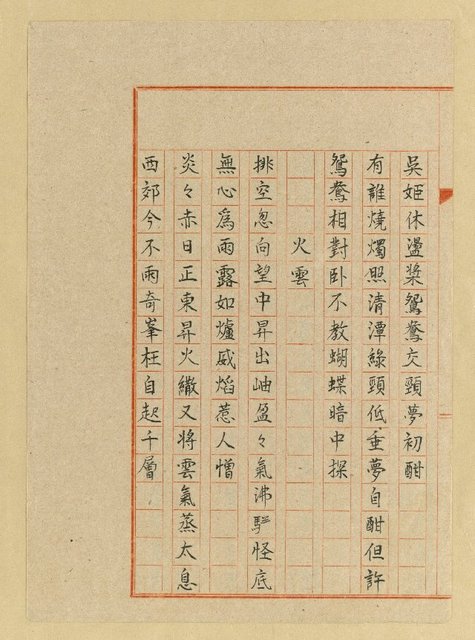 吳姬休盪槳鴛鴦交頸夢初酣
有誰燒燭照清潭綠頸低垂夢自酣但許
鴛鴦相對卧不教蝴蝶暗中探
火雲
排空忽向望中昇出岫盈々氣沸騰怪底
無心為雨露如爐威焰惹人憎
炎々赤日正東昇火繖又將雲氣蒸太息
西郊今不雨奇峯枉自起千層